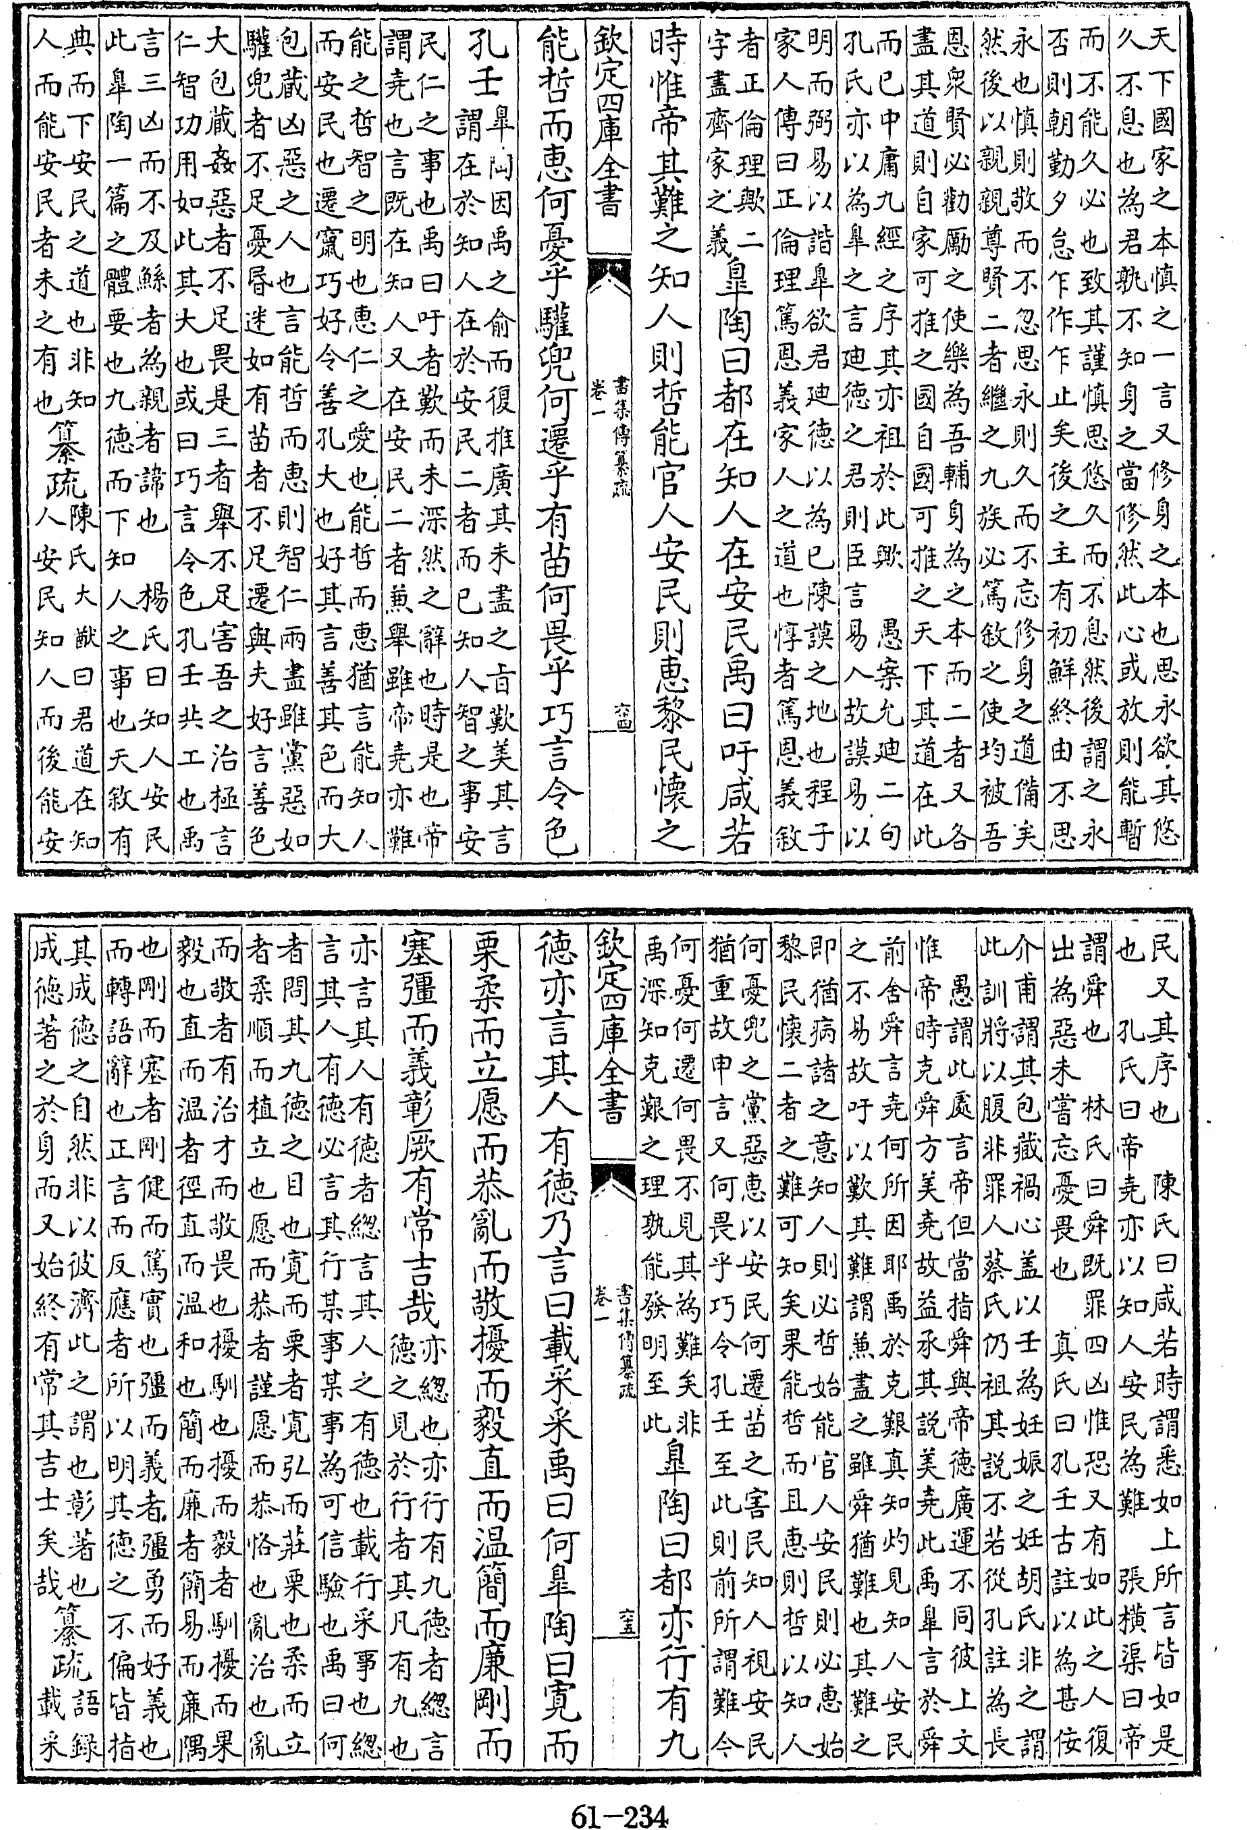 天下國家之本慎之一言又修身之本也思永欲其悠
久不息也為君孰不知身之當修然此心或放則能暫
而不能久必也致其謹慎思悠久而不息然後謂之永
否則朝勤夕怠乍作乍止矣後之主有初鮮終由不思
永也慎則敬而不忽思永則久而不忘修身之道備矣
然後以親親尊賢二者繼之九族必篤敘之使均被吾
恩衆賢必勸勵之使樂為吾輔身為之本而二者又各
盡其道則自家可推之國自國可推之天下其道在此
而已中庸九經之序其亦祖於此歟　愚案允迪二句
孔氏亦以為臯之言迪德之君則臣言易入故謨易以
明而弼易以諧臯欲君迪德以為已陳謨之地也程子
家人傳曰正倫理篤恩義家人之道也惇者篤恩義敘
者正倫理歟二
字盡齊家之義
臯陶曰都在知人在安民禹曰吁咸若
時惟帝其難之知人則哲能官人安民則惠黎民懷之
欽定四庫全書
書集傳纂疏
卷一
六四
能哲而惠何憂乎驩兜何遷乎有苗何畏乎巧言令色
孔壬
臯陶因禹之俞而復推廣其未盡之旨歎美其言
謂在於知人在於安民二者而已知人智之事安
民仁之事也禹曰吁者歎而未深然之辭也時是也帝
謂堯也言既在知人又在安民二者兼舉雖帝堯亦難
能之哲智之明也惠仁之愛也能哲而惠猶言能知人
而安民也遷竄巧好令善孔大也好其言善其色而大
包藏凶惡之人也言能哲而惠則智仁兩盡雖黨惡如
驩兜者不足憂昏迷如有苗者不足遷與夫好言善色
大包藏姦惡者不足畏是三者舉不足害吾之治極言
仁智功用如此其大也或曰巧言令色孔壬共工也禹
言三凶而不及鯀者為親者諱也　楊氏曰知人安民
此臯陶一篇之體要也九德而下知人之事也天敘有
典而下安民之道也非知
人而能安民者未之有也
纂疏
陳氏大猷曰君道在知
人安民知人而後能安
民又其序也　陳氏曰咸若時謂悉如上所言皆如是
也　孔氏曰帝堯亦以知人安民為難　張橫渠曰帝
謂舜也　林氏曰舜既罪四凶惟恐又有如此之人復
出為惡未嘗忘憂畏也　真氏曰孔壬古註以為甚佞
介甫謂其包藏禍心盖以壬為妊娠之妊胡氏非之謂
此訓將以腹非罪人蔡氏仍祖其説不若從孔註為長
愚謂此處言帝但當指舜與帝德廣運不同彼上文
惟帝時克舜方美堯故益承其説美堯此禹臯言於舜
前舍舜言堯何所因耶禹於克艱真知灼見知人安民
之不易故吁以歎其難謂兼盡之雖舜猶難也其難之
即猶病諸之意知人則必哲始能官人安民則必惠始
黎民懷二者之難可知矣果能哲而且惠則哲以知人
何憂兜之黨惡惠以安民何遷苗之害民知人視安民
猶重故申言又何畏乎巧令孔壬至此則前所謂難今
何憂何遷何畏不見其為難矣非
禹深知克艱之理孰能發明至此
臯陶曰都亦行有九
欽定四庫全書
書集傳纂疏
卷一
六五
德亦言其人有德乃言曰載采采禹曰何臯陶曰寛而
栗柔而立愿而恭亂而敬擾而毅直而温簡而廉剛而
塞彊而義彰厥有常吉哉
亦總也亦行有九德者總言
德之見於行者其凡有九也
亦言其人有德者總言其人之有德也載行采事也總
言其人有德必言其行某事某事為可信驗也禹曰何
者問其九德之目也寛而栗者寛弘而莊栗也柔而立
者柔順而植立也愿而恭者謹愿而恭恪也亂治也亂
而敬者有治才而敬畏也擾馴也擾而毅者馴擾而果
毅也直而温者徑直而温和也簡而廉者簡易而廉隅
也剛而塞者剛健而篤實也彊而義者彊勇而好義也
而轉語辭也正言而反應者所以明其德之不偏皆指
其成德之自然非以彼濟此之謂也彰著也
成德著之於身而又始終有常其吉士矣哉
纂疏
語録
載采
61—234